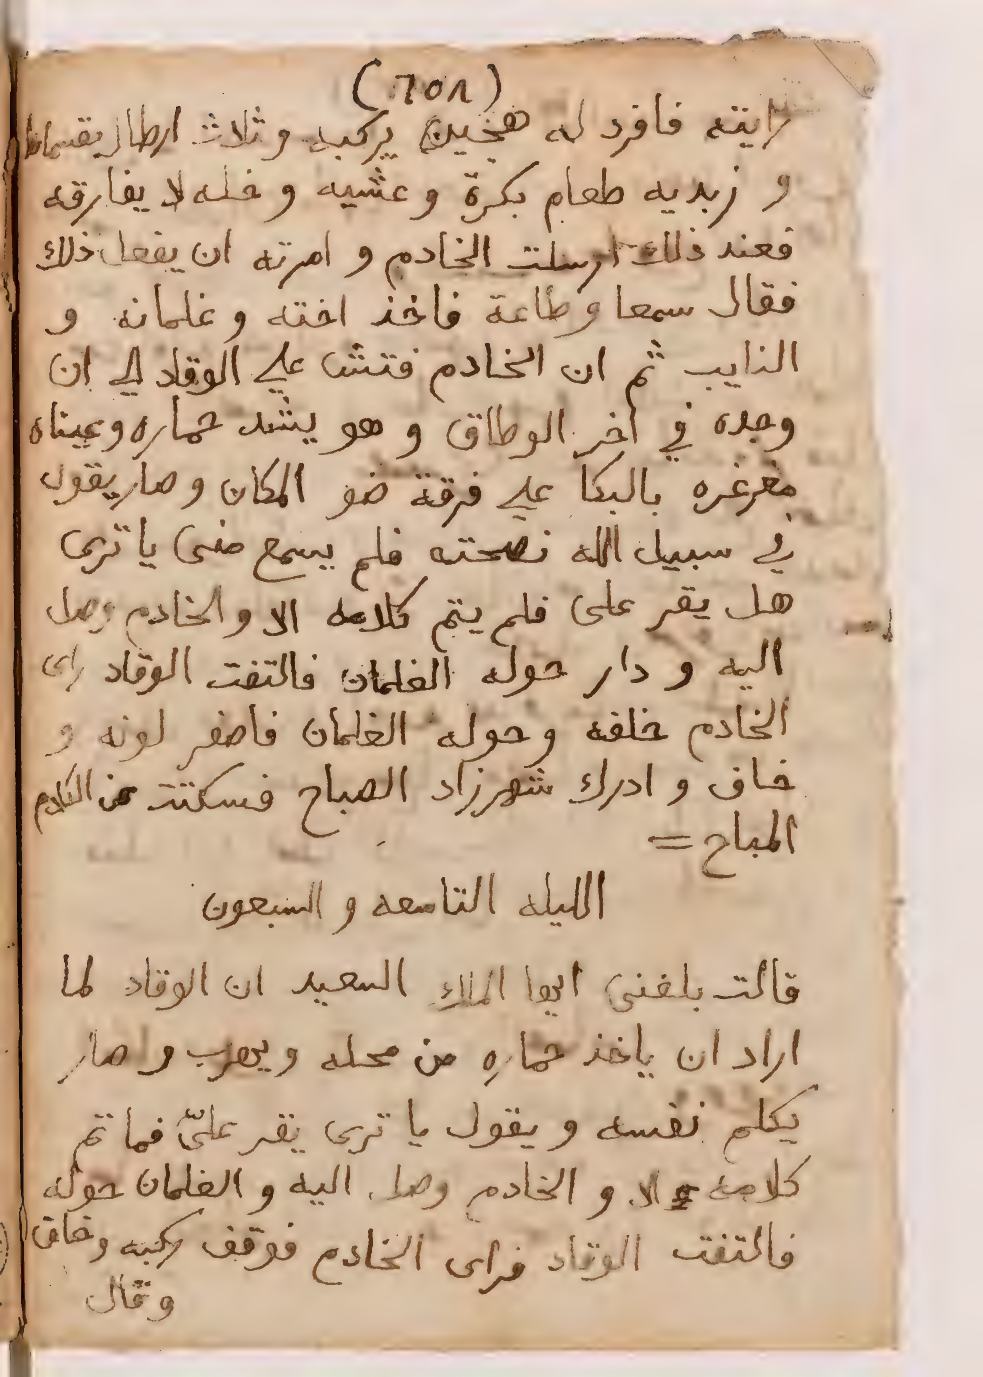 (٦٥٨)
رايته فافرد له هجين يركبه وثلاث ارطال بقسماط
و زبديه طعام بكرة و عشيه و خله لا يفارقه
فعند ذلك ارسلت الخادم و امرته ان يفعل ذلك
فقال سمعا وطاعة فاخذ اخته و غلمانه و
النايب ثم ان الخادم فتش على الوقاد الي ان
وجده في اخر الوطاق و هو يشد حماره وعيناه
مغرغره بالبكا علي فرقة ضو المكان وصار يقول
في سبيل الله نصحته فلم يسمع منى يا ترى
هل يقر على فلم يتم كلامه الا والخادم وصل
اليه و دار حوله الغلمان فالتفت الوقاد راى
الخادم خلفه وحوله الغلمان فاصفر لونه و
خاف و ادرك شهرزاد الصباح فسكتت عن الكلام
المباح =
الليله التاسعه و السبعون
قالت بلغنى ايها الملك السعيد ان الوقاد لما
اراد ان ياخذ حماره من محله ويهرب وصار
يكلم نفسه ويقول يا ترى يقر علىّ فما تم
كلامه الا و الخادم وصل اليه و الغلمان حوله
فالتفت الوقاد فراى الخادم فوقف ركبه وخاف
وقال